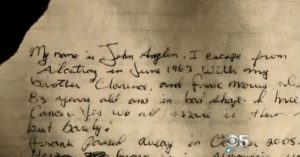 My name is John Anglin. I escape from
Alcatraz in June 1962 With my
brother Clarence, and Frank Morris
83 years old and in bad shape. I
Cancer. Yes we all made it that
but barly!
Frank passed away in October 2005
5